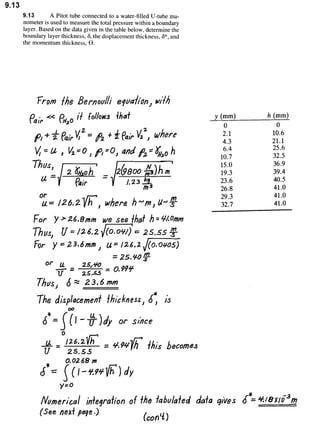 9.13
9.13 A Pitot tube connected to a water-filled U-tube ma-
nometer is used to measure the total pressure within a boundary
layer. Based on the data given in the table below, determine the
boundary layer thickness, δ, the displacement thickness, δ*, and
the momentum thickness, Θ.
From the Bernoulli equation, with
ρair << ρH2O it follows that
p1 + ½ ρair V1² = p2 + ½ ρair V2², where
V1 = u , V2 = 0 , p1 = 0, and p2 = γH2O h
Thus,
u = √(2 γH2O h / ρair) = √(2(9800 N/m³) h m / 1.23 kg/m³)
or
u = 126.2 √h , where h~m, u~ m/s
y (mm) h (mm)
0 0
2.1 10.6
4.3 21.1
6.4 25.6
10.7 32.5
15.0 36.9
19.3 39.4
23.6 40.5
26.8 41.0
29.3 41.0
32.7 41.0
For y > 26.8mm we see that h = 41.0mm
Thus, U = 126.2 √(0.041) = 25.55 m/s
For y = 23.6mm , u = 126.2 √(0.0405)
= 25.40 m/s
or u/U = 25.40/25.55 = 0.994
Thus, δ ≈ 23.6 mm
The displacement thickness, δ*, is
δ* = ∫0^∞ (1 - u/U) dy or since
u/U = 126.2√h / 25.55 = 4.94√h this becomes
δ* = ∫ y=0 ^ 0.0268 m (1 - 4.94√h) dy
Numerical integration of the tabulated data gives δ* = 4.18x10⁻³ m
(See next page.)
(con't)